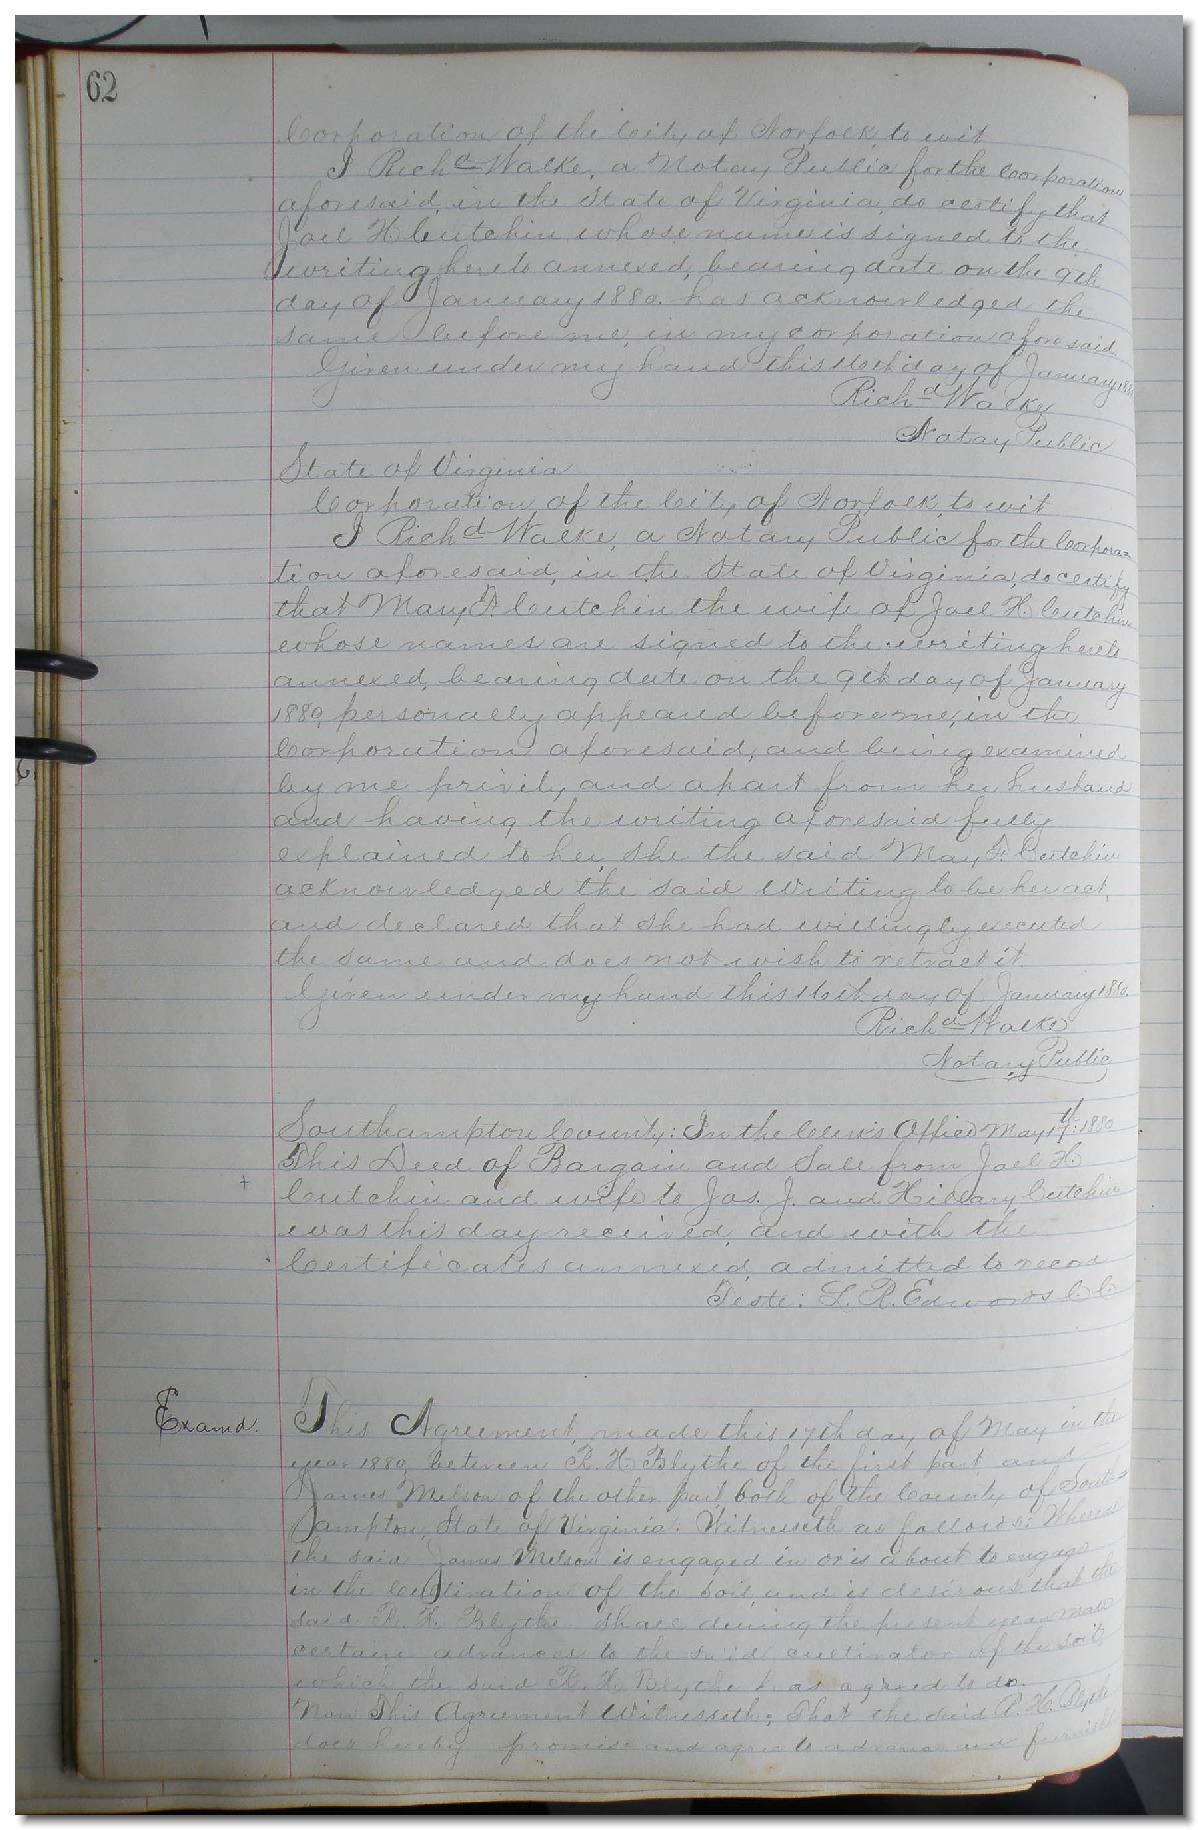 62
Corporation of the City of Norfolk, to wit
I Richd Walke, a Notay Public for the Corporation
aforesaid, in the State of Virginia, do certify that
Joel H Cutchin whose name is signed to the
writing hereto annexed, bearing date on the 9th
day of January 1880. has acknowledged the
same before me, in my corporation aforesaid.
Given under my hand this 16th day of January 1880
Richd Walke
Notay Public
State of Virginia
Corporation, of the City of Norfolk, to wit
I Richd Walke, a Notary Public for the Corpora=
tion aforesaid, in the State of Virginia, do certify
that Mary F. Cutchin the wife of Joel H. Cutchin
whose names are signed to the writing hereto
annexed, bearing date on the 9th day of January
1880, personally appeared before me, in the
Corporation aforesaid, and being examined
by me privily, and apart from her husband
and having the writing aforesaid fully
explained to her, she the said May F. Cutchin
acknowledged the said Writing to be her act,
and declared that she had willingly executed
the same and does not wish to retract it
Given under my hand this 16th day of January 1880.
Richd Walke
Notary Public
Southampton County: In the Clerk's Office May 17th: 1880
This Deed of Bargain and Sale from Joel H.
Cutchin and wife to Jas. J. and Hillary Cutchin
was this day received, and with the
Certificates annexed, admitted to record
Teste: L. R. Edwards C. C.
Examd.
This Agreement, made this 17th day of May in the
year 1880, between R. H. Blythe of the first part and
James Melson of the other part, both of the County of South=
hampton, State of Virginia. Witnesseth as follows: Whereas
the said James Melson is engaged in or is about to engage
in the Cultivation of the soil, and is desirous that the
said R. H. Blythe shall during the present year make
certain advances to the said cultivator of the soil,
which the said R. H. Blythe has agreed to do.
Now This Agreement Witnesseth; That the said R. H. Blythe
does hereby promise and agree to advance and furnish